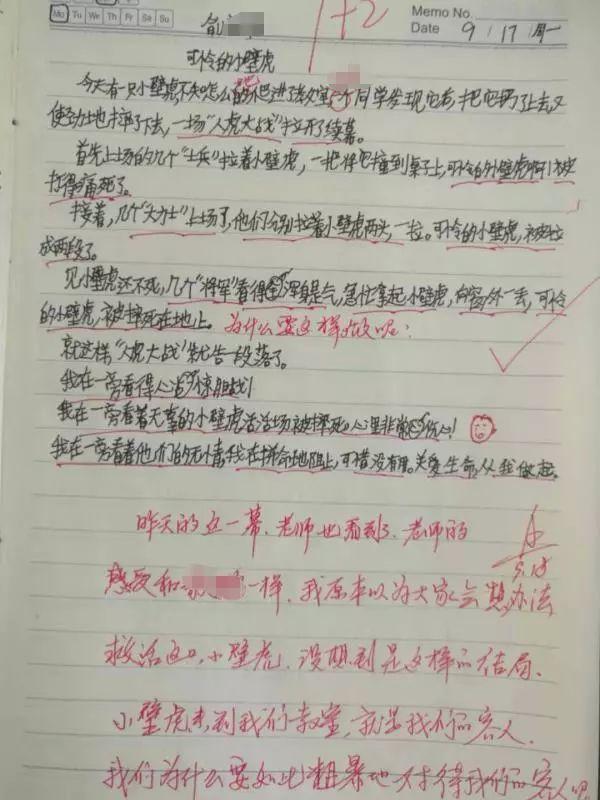 Mo Tu We Th Fr Sa Su
Memo No.
Date 9/17 周一
1+2
可怜的小壁虎
今天有一只小壁虎不知怎么的爬进了教室 个同学发现它后,把它扔了上去又
使劲地摔了下去,一场"人虎大战"拉开了续幕。
首先上场的几个"士兵"拉着小壁虎,一把将它撞到桌子上,可怜的小壁虎啊!被
打得痛死了。
接着,几个"大力士"上场了,他们分别拉着小壁虎两头,一拉。可怜的小壁虎,被拉
成两段了。
见小壁虎还不死,几个"将军"看得浑身是气,急忙拿起小壁虎,向窗外一丢,可怜
的小壁虎,被摔死在地上。 为什么要这样做呢?
就这样,"人虎大战"就告一段落了。
我在一旁看得心惊胆战!
我在一旁看着无辜的小壁虎活活被摔死心里非常伤心!
我在一旁看着他们的无情,我在拼命地阻止,可惜没有用。关爱生命,从我做起。
昨天的这一幕,老师也看到了,老师的
感受和 一样,我原本以为大家会想办法
9.18
救活这只小壁虎,没想到是这样的结局。
小壁虎来到我们教室,就是我们的客人,
我们为什么要如此粗暴地对待我们的客人呢